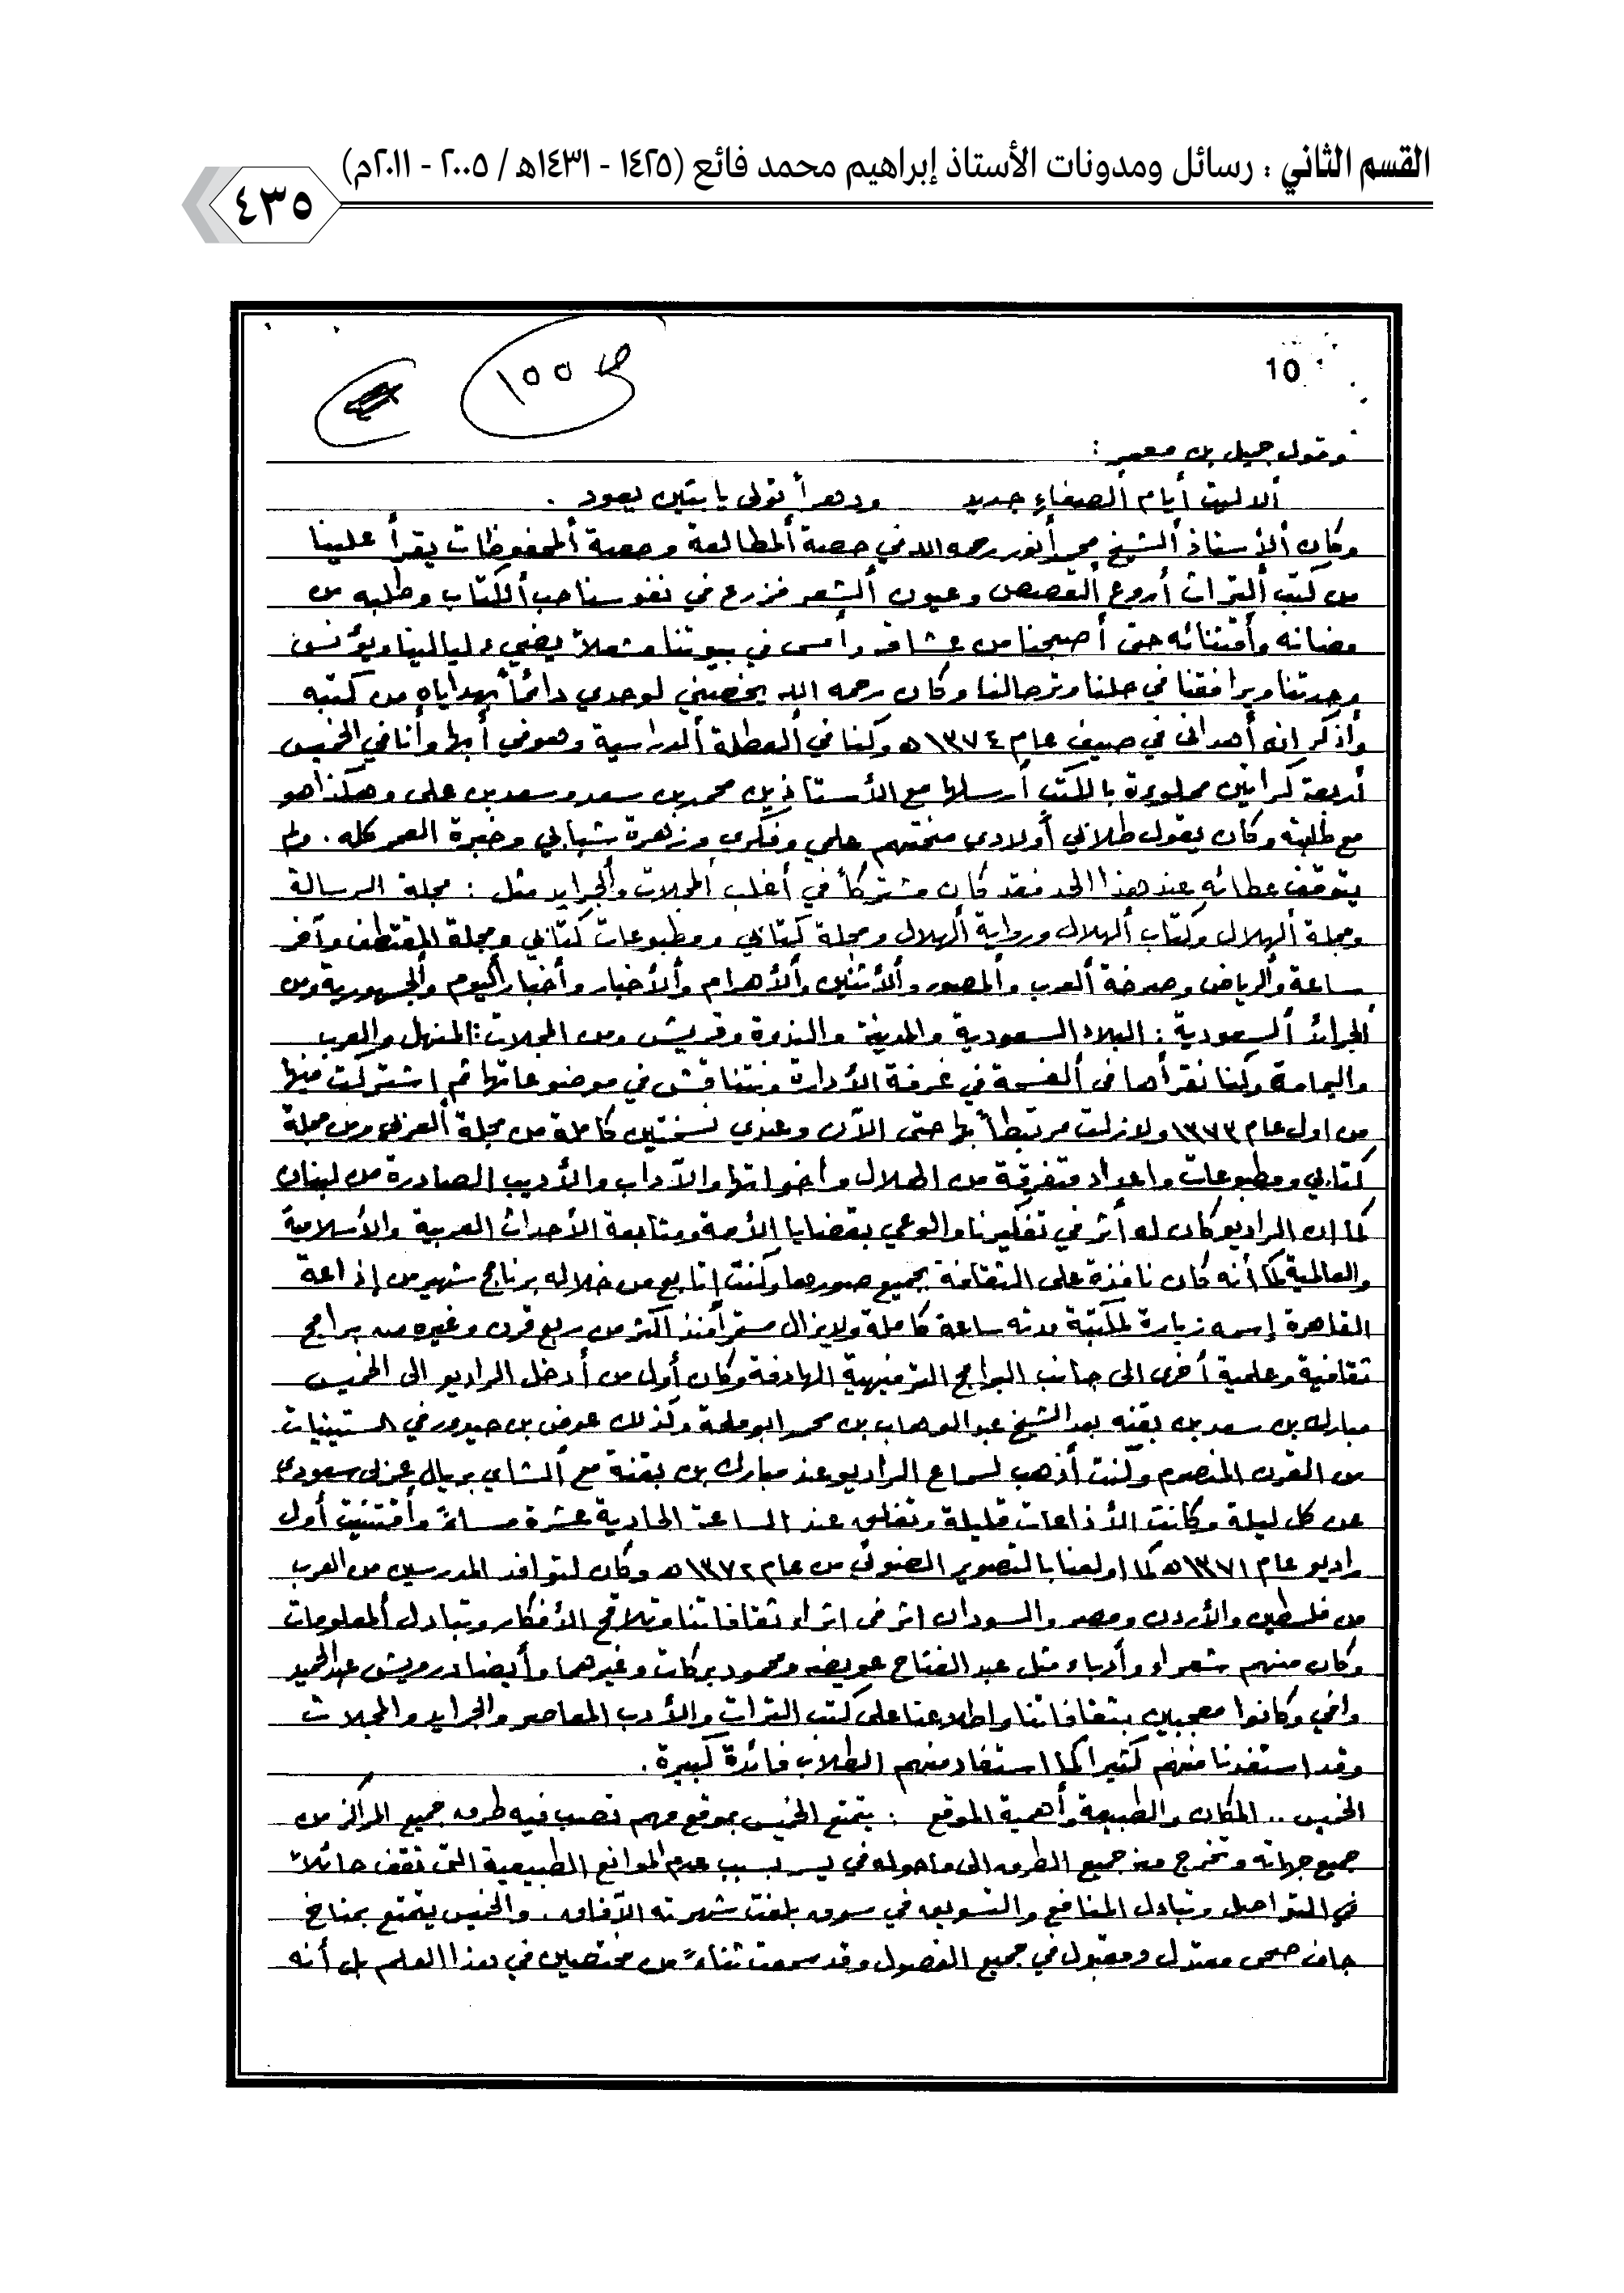 القسم الثاني : رسائل ومدونات الأستاذ إبراهيم محمد فائع (١٤٢٥ - ١٤٣١هـ / ٢٠٠٥ - ٢٠١١م)
٤٣٥
10
ص ١٥٥
وقول جميل بن معمر :
ألا ليت أيام الصفاء جديد ودهراً تولى يا بثين يعود .
وكان الأستاذ الشيخ محمد أنور رحمه الله في حصة المطالعة وحصة المحفوظات يقرأ علينا
من كتب التراث أروع القصص وعيون الشعر فزرع في نفوسنا حب الكتاب وطلبه من
مضانه وأقتنائه حتى أصبحنا من عشاقه وأمسى في بيوتنا مشعلاً يضيء ليالينا ويؤنس
وحدتنا ويرافقنا في حلنا وترحالنا وكان رحمه الله يخصني لوحدي دائماً بهداياه من كتبه
وأذكر انه أهدانى في صيف عام ١٣٧٤ه وكنا في العطلة الدراسية وهو في أبها وأنا في الخميس
أربعة كراتين مملوءة بالكتب أرسلها مع الأستاذين محمد بن سعد وسعد بن على وهكذا هو
مع طلبته وكان يقول طلابي أولادى منحتهم علمي وفكري وزهرة شبابي وخبرة العمر كله . ولم
يتوقف عطائه عند هذا الحد فقد كان مشتركاً في أغلب المجلات والجرايد مثل : مجلة الرسالة
ومجلة الهلال وكتاب الهلال ورواية الهلال ومجلة كتابي ومطبوعات كتابي ومجلة المقتطف وآخر
ساعة والرياض وصرخة العرب والمصور والأثنين والأهرام والأخبار وأخبار اليوم والجمهورية ومن
الجرائد السعودية : البلاد السعودية والمدينة والندوة وقريش ومن المجلات : المنهل والعرب
واليمامة وكنا نقرأها فى الفسحة في غرفة الأدارة ونتناقش في موضوعاتها ثم اشتركت فيها
من اول عام ١٣٧٣ ولازلت مرتبطاً بها حتى الآن وعندي نسختين كاملة من مجلة العربي ومن مجلة
كتابي ومطبوعات واعداد متفرقة من الهلال وأخواتها والآداب والأديب الصادرة من لبنان
كما ان الراديو كان له أثر في تفكيرنا والوعي بقضايا الأمة ومتابعة الأحداث العربية والأسلامية
والعالمية كما أنه كان نافذة على الثقافة بجميع صورها وكنت اتابع من خلاله برنامج شهير من إذاعة
القاهرة إسمه زيارة لمكتبة مدته ساعة كاملة ولايزال مستمراً منذ اكثر من ربع قرن وغيره من برامج
ثقافية وعلمية أخرى الى جانب البرامج الترفيهية الهادفة وكان أول من أدخل الراديو الى الخميس
مبارك بن سعد بن بقنه بعد الشيخ عبد الوهاب بن محمد ابوملحة وكذلك عوض بن حيدور في الستينيات
من القرن المنصرم وكنت أذهب لسماع الراديو عند مبارك بن بقنة مع الشاي بريال عربى سعودى
عن كل ليلة وكانت الأذاعات قليلة وتغلق عند الساعة الحادية عشرة مساءً وأقتنيت أول
راديو عام ١٣٧١ه كما اولعنا بالتصوير الضوئي من عام ١٣٧٢ه وكان لتوافد المدرسين من العرب
من فلسطين والأردن ومصر والسودان اثر فى اثراء ثقافاتنا وتلاقح الأفكار وتبادل المعلومات
وكان منهم شعراء وأدباء مثل عبد الفتاح عويضه ومحمود بركات وغيرهما وأيضا درويش عبد الحميد
وافي وكانوا معجبين بثقافاتنا واطلاعنا على كتب التراث والأدب المعاصر والجرايد والمجلات
وقد استفدنا منهم كثيرا كما استفاد منهم الطلاب فائدة كبيرة .
الخميس .. المكان والطبيعة وأهمية الموقع : يتمتع الخميس بموقع مهم تصب فيه طرق جميع المراكز من
جميع جهاته وتخرج منه جميع الطرق الى ماحوله في يسر بسبب عدم الموانع الطبيعية التى تقف حائلاً
في التواصل وتبادل المنافع والتسويق في سوق بلغت شهرته الآفاق . والخميس يتمتع بمناخ
جاف صحى معتدل ومقبول في جميع الفصول وقد سمعت ثناءً من مختصين في هذا العلم بل أنه